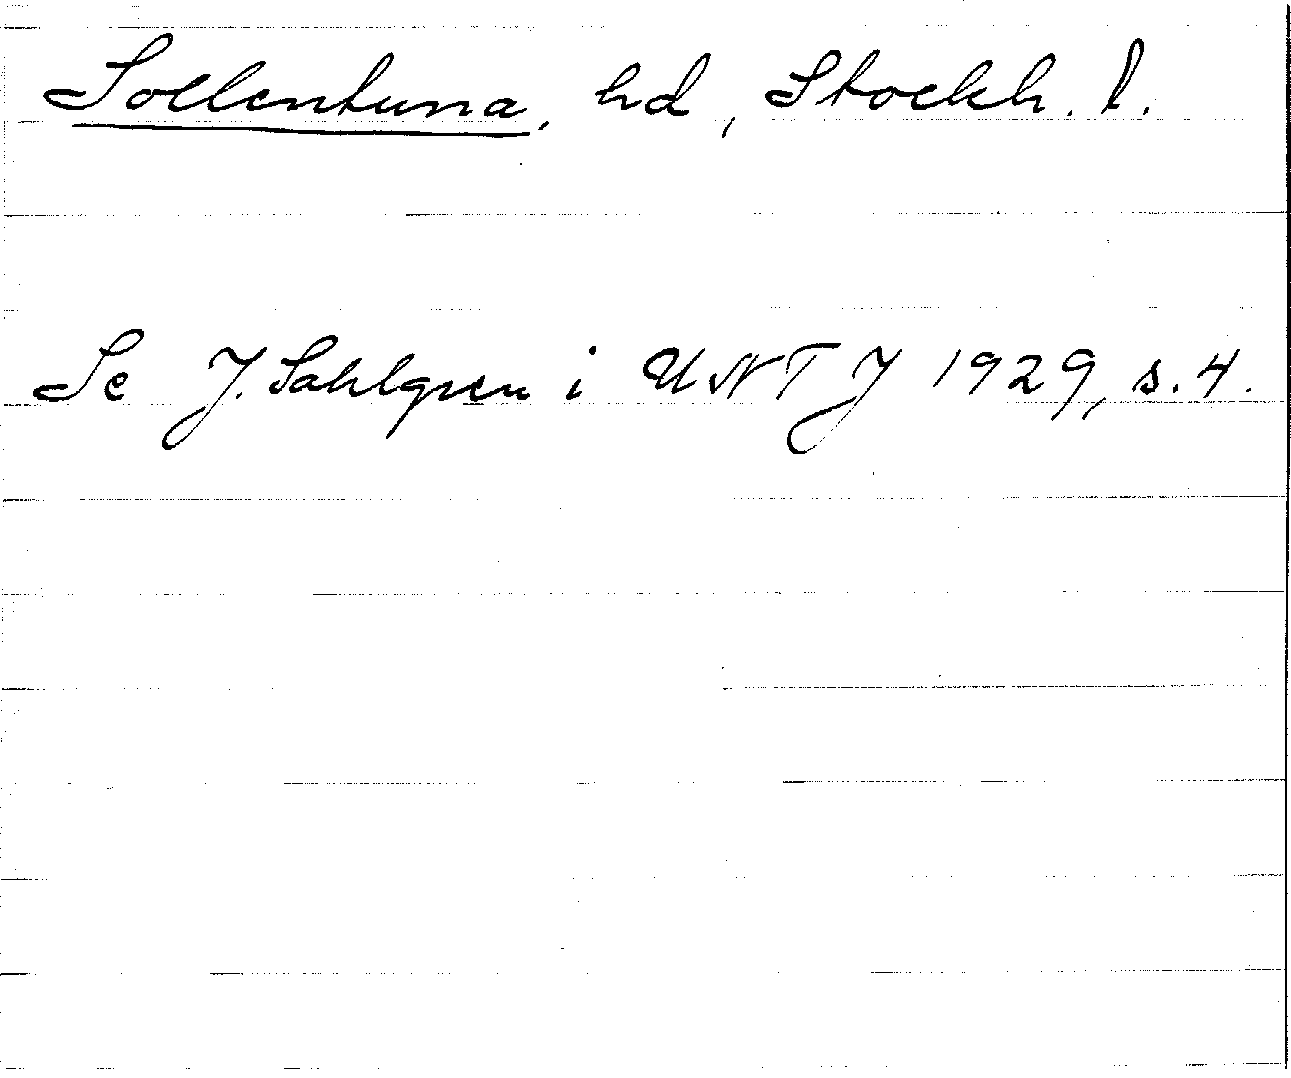 Sollentuna, hd, Stockh. l.
Se J. Sahlgren i UNT J 1929, s. 4.